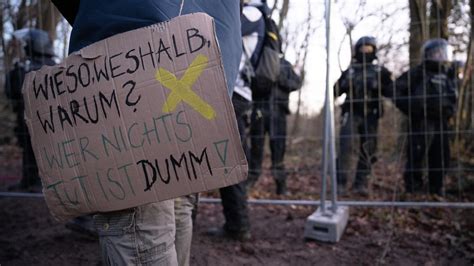 WIESO, WESHALB,
WARUM?
WER NICHTS
TUT IST DUMM!